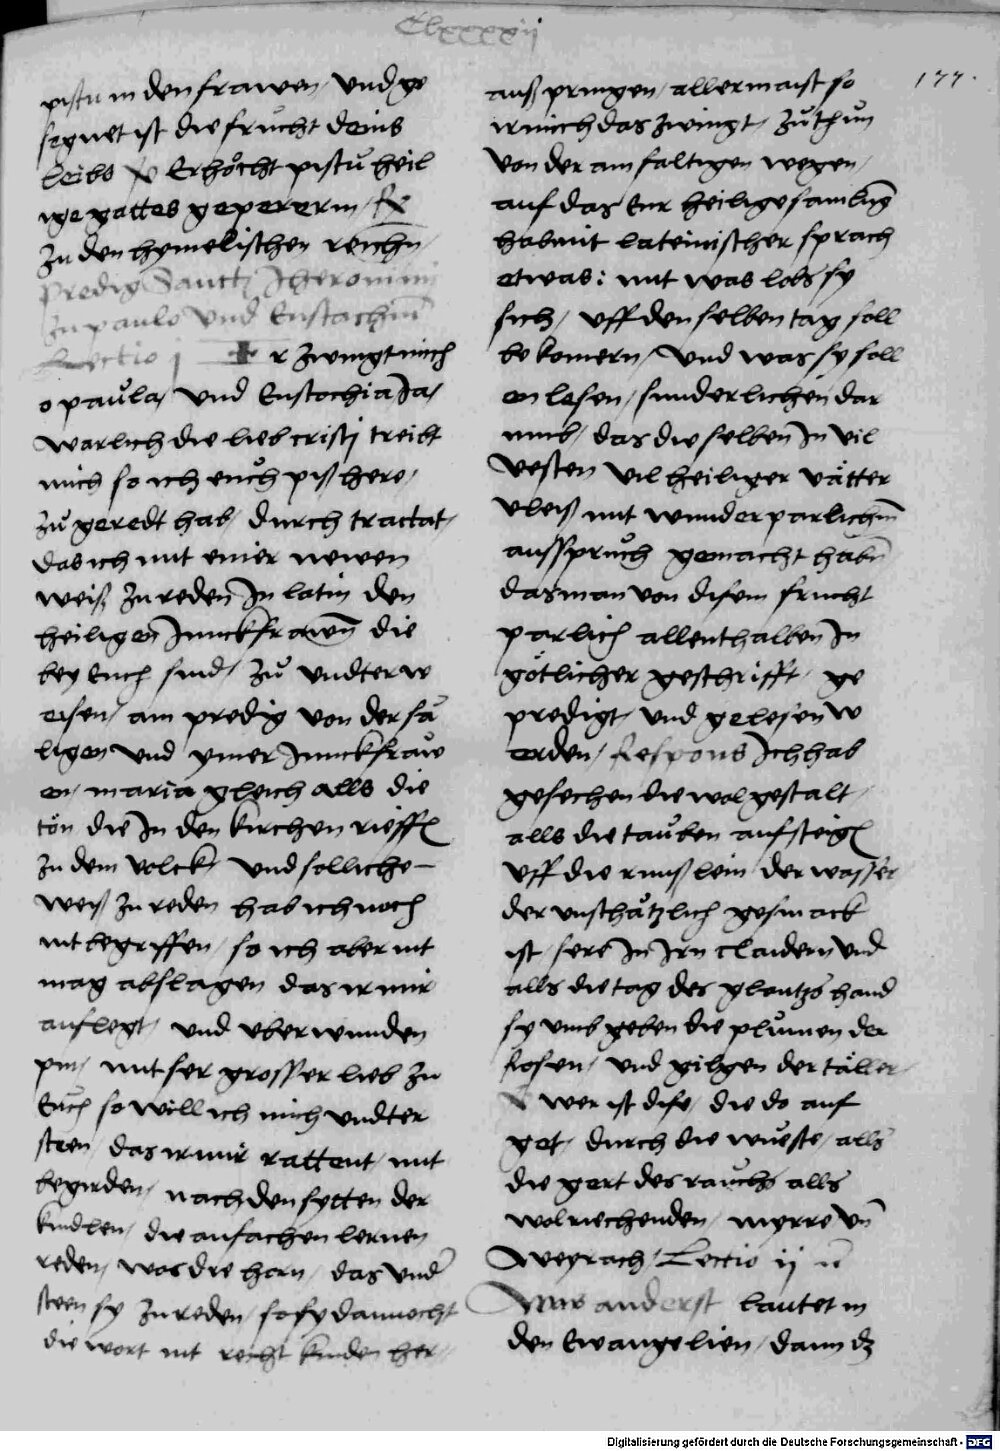 Clxxxxij
177.
pistu in den frawen / Vnd ge
segnet ist die frucht deins
leibs Erhöcht pistu heil
ige gattes gepererin / R
zu den hymelischen reichn /
Predig Sanctj Iheronimi
zu paulo vnd Eustachiu
Lectio j Er zwingt mich
o paula / vnd Eustochia Ja /
warlich die lieb cristj treibt
mich so ich euch piß here /
zu geredt hab / durch tractat /
das ich mit einer newen
weiß zu reden In latin den
heiligen Junckfrawen die
bey Euch sind / zu vndterw
eisen / ain predig von der sä
ligen vnd ymer Junckfraw
en / maria gleich alls die
tön die In den kirchen rieffen
zu dem volck vnd solliche
weiß zu reden hab ich noch
nit begriffen / so ich aber nit
mag abslagen das ir mir
auflegt / vnd vberwunden
pin / mit ser grosser lieb zu
Euch so will ich mich vndter
steen / das ir mir rattent / mit
begirden / nach den sytten der
kindlen / die anfachen lernen
reden / was die horn / das vnder
steen sy zu reden / so sy dannocht
die wort nit recht kinden her
auß pringen / allermaist so
ir mich das zwingt / zuthun
von der ainfaltigen wegen /
auf das Eur heilige samlung
hab mit lateinischer sprach
etwas : mit was lobs sy
sich / vff den selben tag soll
bekomern / Vnd was sy soll
en lesen / sunderlichen dar
umb / das die selben In vil
vesten vil heiliger vätter
vleiß mit wunderparlichem
ausspruch gemacht haben
das man von disem frucht
parlich allenthalben In
götlicher geschrifft / ge
predigt / vnd gelesen w
erden / Respons Ich hab
gesechen die wolgestalt /
alls die tauben aufsteigen
vff die runßlein der wasser
der vnschätzlich gesmack
ist / sere In Irn claidern vnd
alls die tag des glantzs hand
sy vmbgeben die plumen der
Rosen / vnd gilgen der täller /
V wer ist dise / die do auf
get / durch die wueste / alls
die gert des rauchs alls
wolriechenden / myrre vn
weyrach / Lectio ij
Was anderst lautet in
den Ewangelien / dann dz